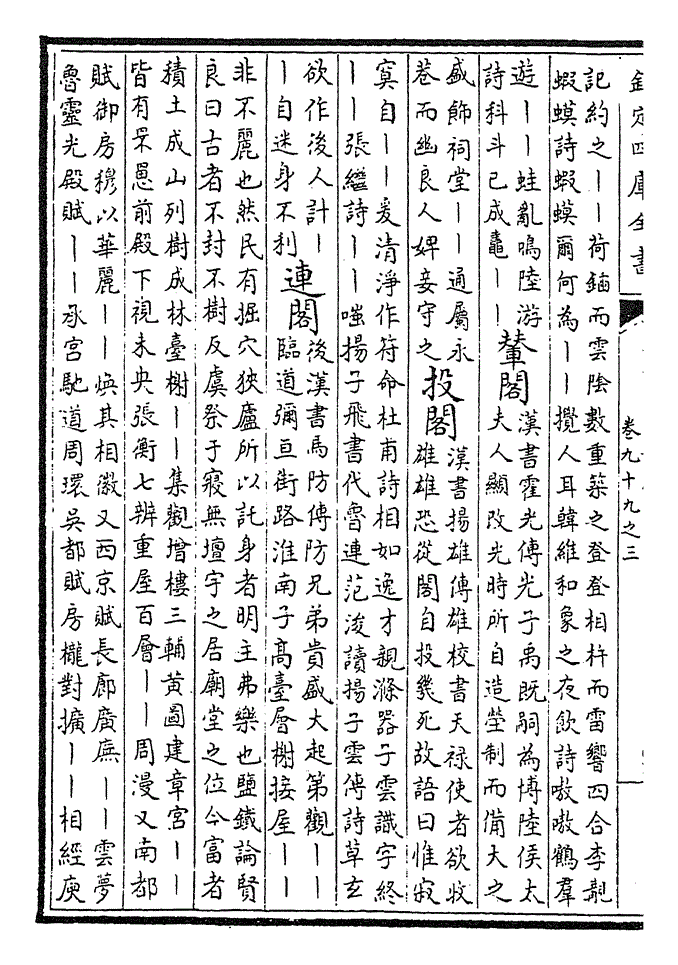 欽定四庫全書
卷九十九之三
記約之——荷鍤而雲陰數重築之登登相杵而雷響四合李覯
蝦蟆詩蝦蟆爾何為——攪人耳韓維和象之夜飲詩嗷嗷鶴羣
遊——蛙亂鳴陸游
詩科斗已成鼃——
輦閣
漢書霍光傳光子禹既嗣為博陸侯太
夫人顯改光時所自造塋制而備大之
盛飾祠堂——通屬永
巷而幽良人婢妾守之
投閣
漢書揚雄傳雄校書天禄使者欲收
雄雄恐從閣自投幾死故語曰惟寂
寞自——爰清淨作符命杜甫詩相如逸才親滌器子雲識字終
——張繼詩——嗤揚子飛書代魯連范浚讀揚子雲傳詩草玄
欲作後人計—
—自迷身不利
連閣
後漢書馬防傳防兄弟貴盛大起第觀——
臨道彌亘街路淮南子高臺層榭接屋——
非不麗也然民有掘穴狹廬所以託身者明主弗樂也鹽鐵論賢
良曰古者不封不樹反虞祭于寢無壇宇之居廟堂之位今富者
積土成山列樹成林臺榭——集觀增樓三輔黃圖建章宮——
皆有罘罳前殿下視未央張衡七辨重屋百層——周漫又南都
賦御房穆以華麗——煥其相徽又西京賦長廊廣廡——雲夢
魯靈光殿賦——承宮馳道周環吳都賦房櫳對擴——相經庾